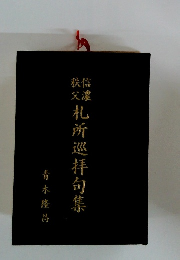 信濃
秩父
札所巡拝句集
青木隆吉